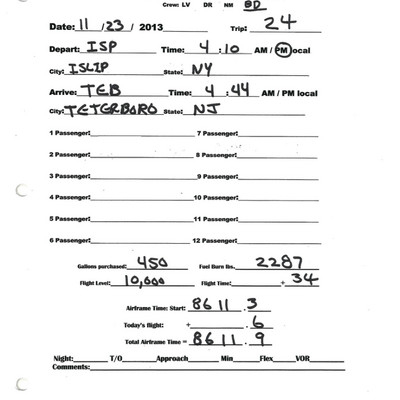 Crew: LV DR NM BD
Date: 11 / 23 / 2013 Trip: 24
Depart: ISP Time: 4 : 10 AM / PM local
City: ISLIP State: NY
Arrive: TEB Time: 4 : 44 AM / PM local
City: TETERBORO State: NJ
1 Passenger: 7 Passenger:
2 Passenger: 8 Passenger:
3 Passenger: 9 Passenger:
4 Passenger: 10 Passenger:
5 Passenger: 11 Passenger:
6 Passenger: 12 Passenger:
Gallons purchased: 450 Fuel Burn lbs. 2287
Flight Level: 10,000 Flight Time: + 34
Airframe Time: Start: 8611 .3
Today's flight: + .6
Total Airframe Time = 8611 .9
Night: T/O Approach Min Flex VOR
Comments: